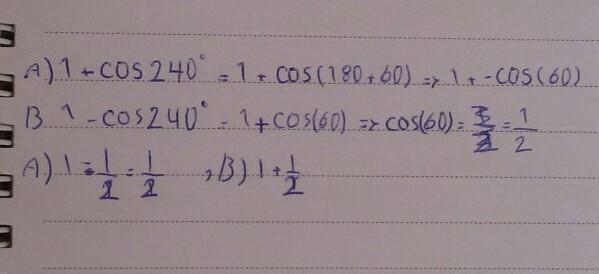 A) 1 + cos 240° = 1 + cos(180+60) => 1 + -cos(60)
B 1 - cos 240° - 1 + cos(60) => cos(60) = = 1/2
A) 1 = 1/2 = 1/2 , B) 1 + 1/2